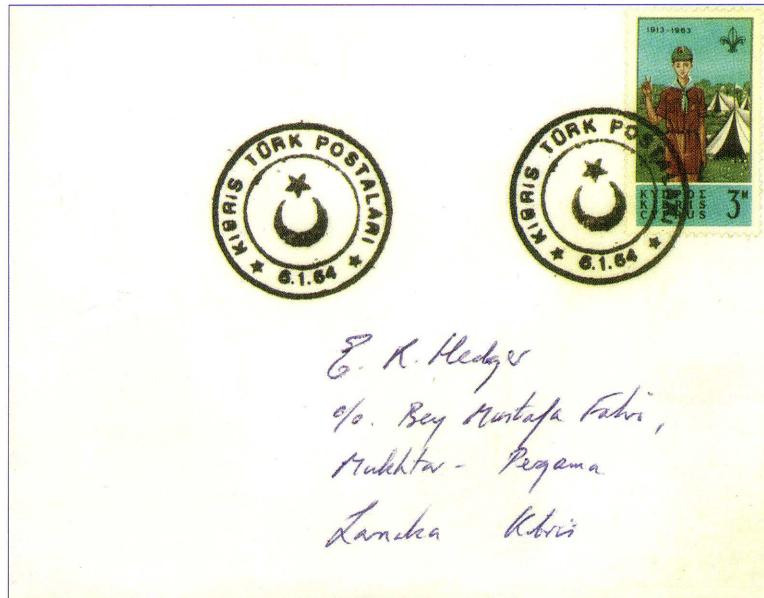 1913-1963
KIBRIS TÜRK POSTALARI
6.1.64
KIBRIS TÜRK POSTALARI
6.1.64
ΚΥΠΡΟΣ
KIBRIS
CYPRUS
3M
E. R. Hedger
c/o. Bey Mustafa Fahri,
Mukhtar - Pergama
Larnaka Kibris